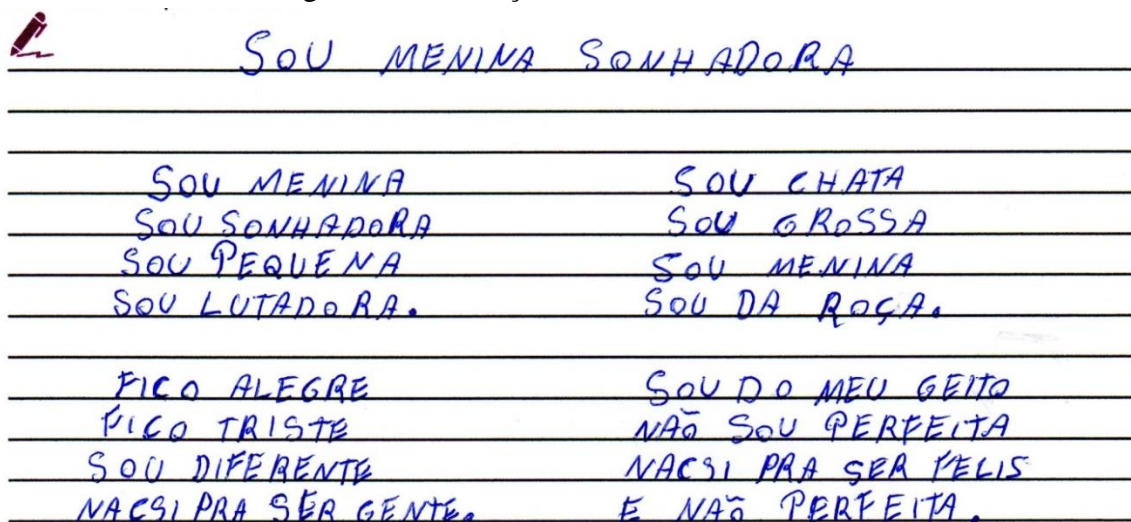 SOU MENINA SONHADORA
SOU MENINA
SOU SONHADORA
SOU PEQUENA
SOU LUTADORA.
FICO ALEGRE
FICO TRISTE
SOU DIFERENTE
NACSI PRA SER GENTE.
SOU CHATA
SOU GROSSA
SOU MENINA
SOU DA ROÇA.
SOU DO MEU GEITO
NÃO SOU PERFEITA
NACSI PRA SER FELIS
E NÃO PERFEITA.